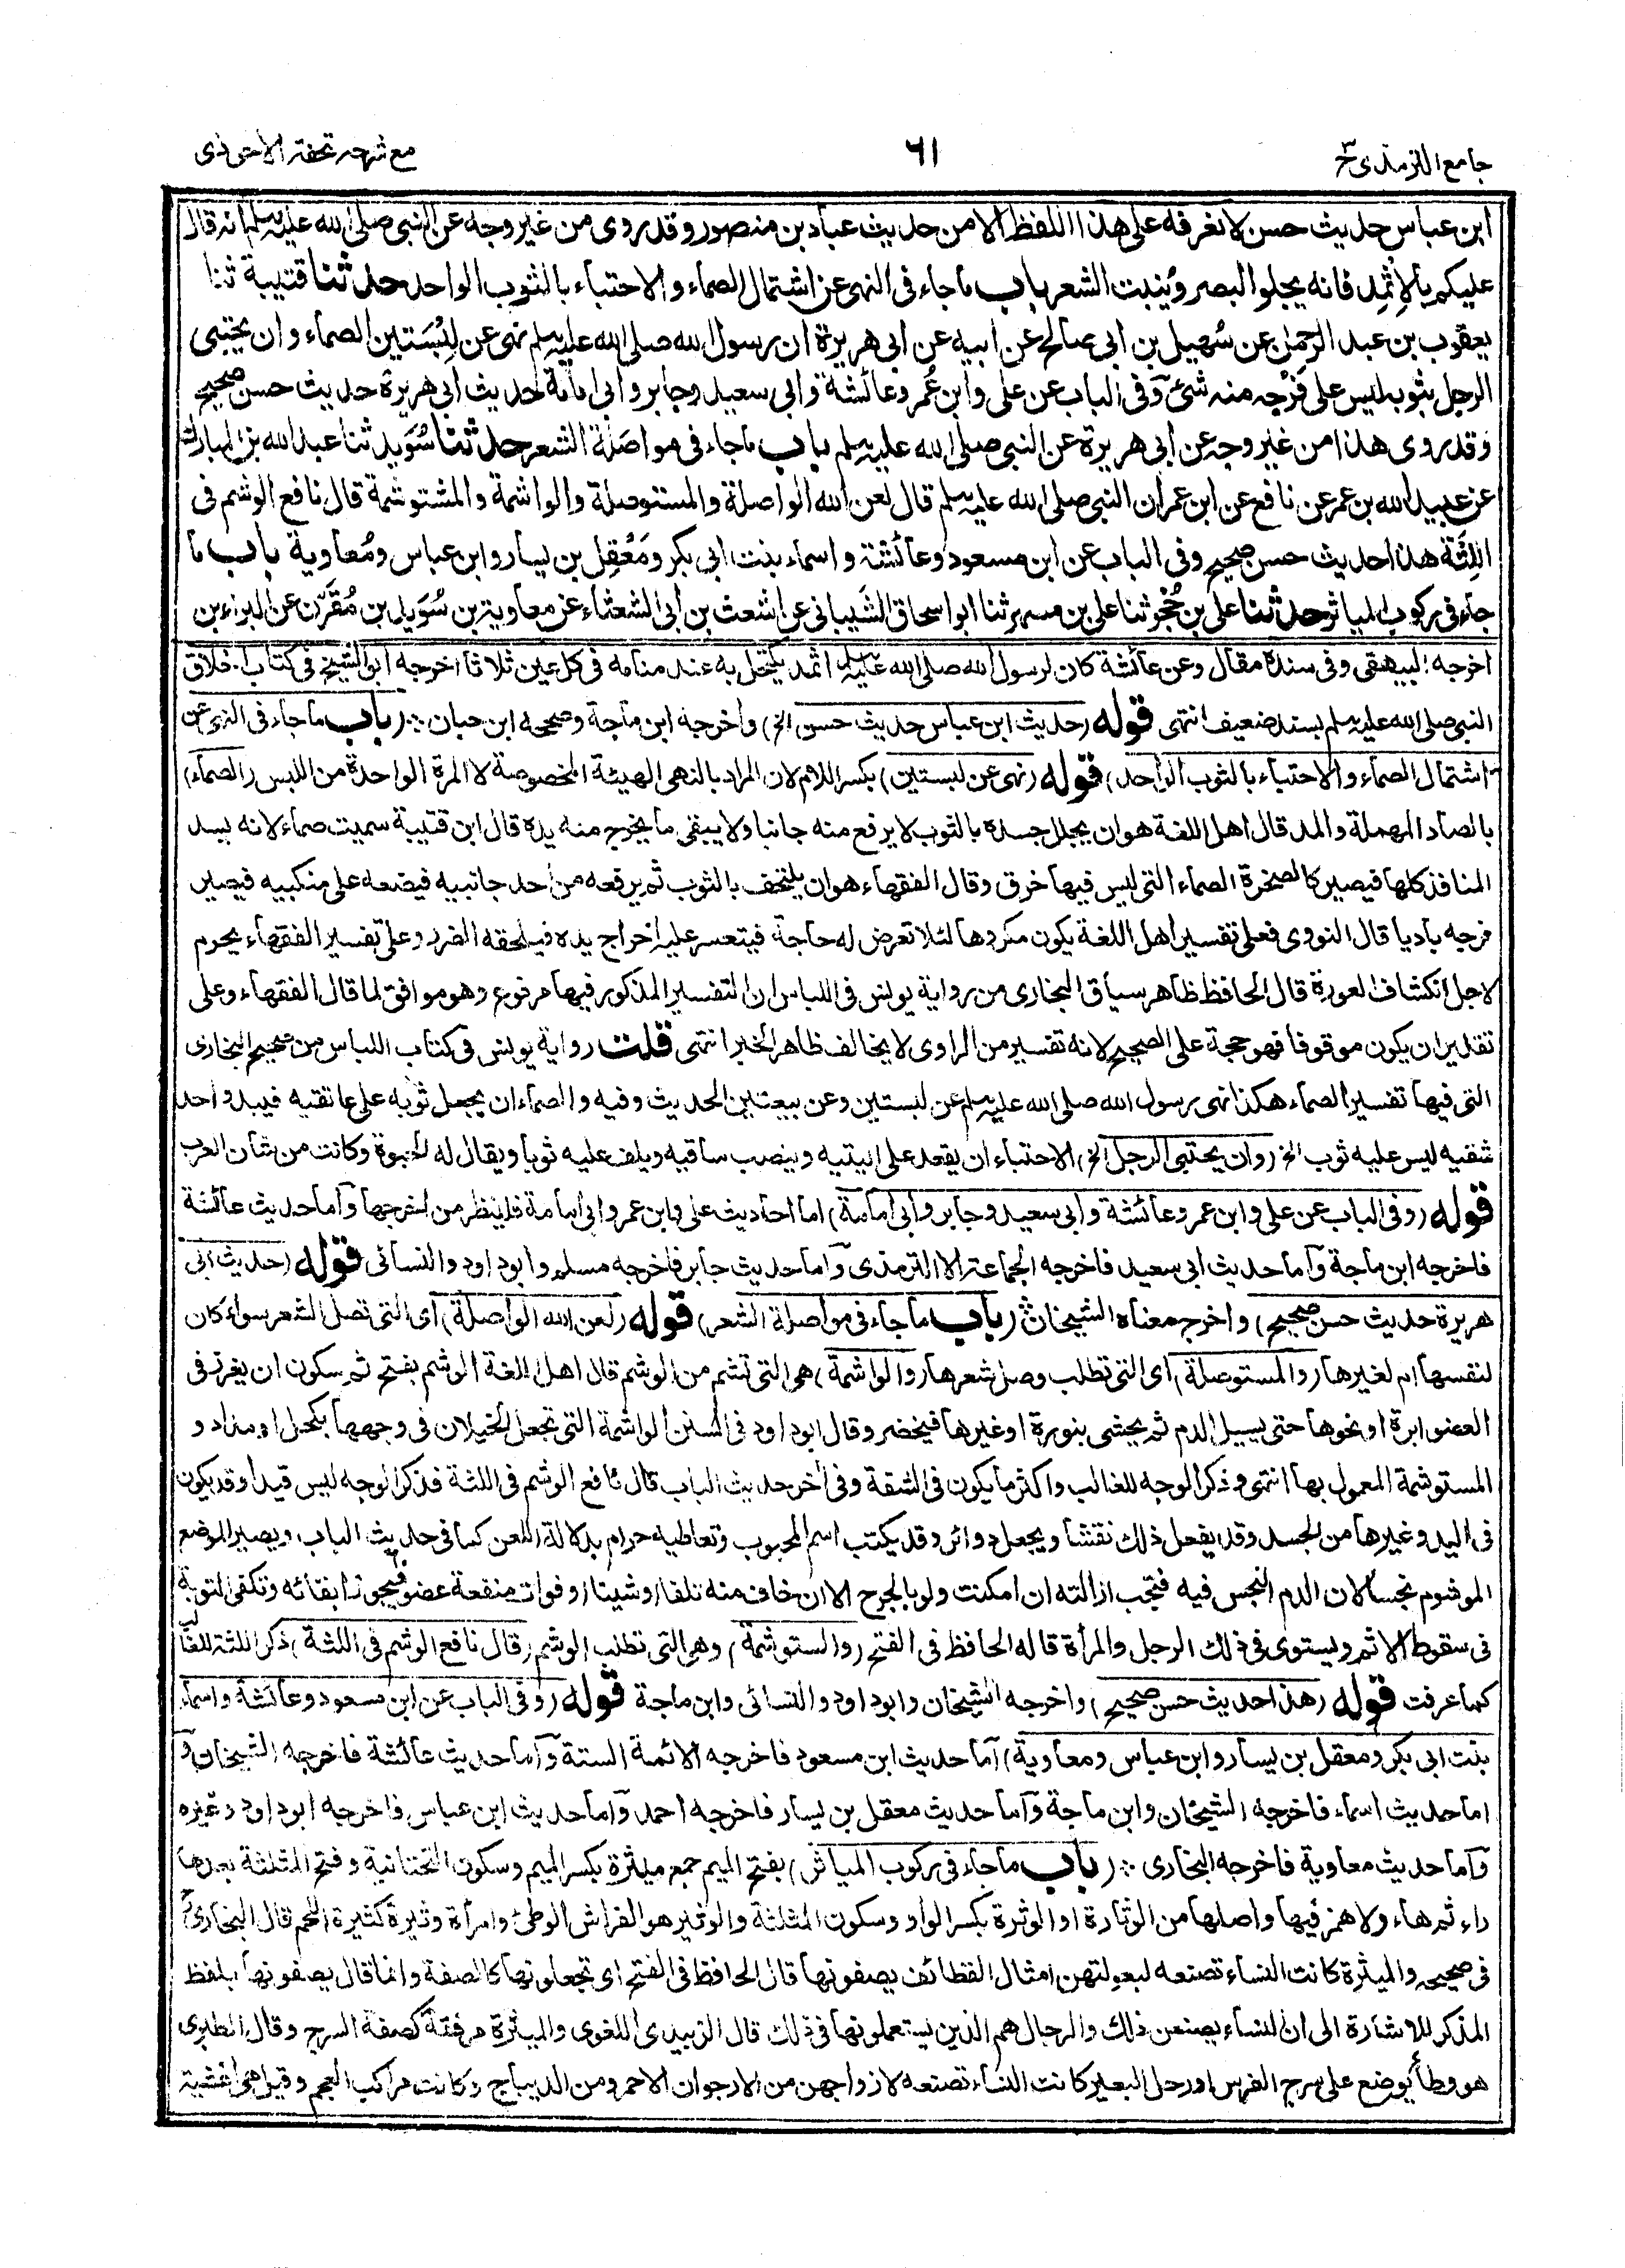 جامع الترمذي ج٣
٦١
مع شرحه تحفة الاحوذي
ابن عباس حديث حسن لا نعرفه على هذا اللفظ الا من حديث عباد بن منصور وقد روى من غير وجه عن النبي صلى الله عليه وسلم انه قال
عليكم بالاِثْمِد فانه يجلو البصر ويُنبت الشعر باب ما جاء في النهى عن اشتمال الصماء والاحتباء بالثوب الواحد حدثنا قتيبة ثنا
يعقوب بن عبد الرحمٰن عن سُهيل بن ابي صالح عن ابيه عن ابي هريرة ان رسول الله صلى الله عليه وسلم نهى عن لِبْسَتين الصماء وان يحتبى
الرجل بثوبه ليس على فَرْجه منه شئ وفي الباب عن على وابن عُمر وعائشة وابي سعيد وجابر وابي امامة حديث ابي هريرة حديث حسن صحيح
وقد روى هذا من غير وجه عن ابي هريرة عن النبي صلى الله عليه وسلم باب ما جاء في مواصَلَة الشعر حدثنا سُوَيد ثنا عبد الله بن المبارك
عن عبيد الله بن عمر عن نافع عن ابن عمر ان النبي صلى الله عليه وسلم قال لعن الله الواصلة والمستوصلة والواشمة والمستوشمة قال نافع الوشم في
اللِثَة هذا حديث حسن صحيح وفي الباب عن ابن مسعود وعائشة واسماء بنت ابي بكر ومَعْقِل بن يسار وابن عباس ومُعاوية باب ما
جاء في ركوب المياثر حدثنا على بن حُجْر ثنا على بن مسهر ثنا ابو اسحاق الشَيباني عن اشعث بن ابي الشعثاء عن معاوية بن سُوَيد بن مُقَرِّن عن البراء بن
اخرجه البيهقى وفي سنده مقال وعن عائشة كان لرسول الله صلى الله عليه وسلم اثمد يكتحل به عند منامه في كل عين ثلاثا اخرجه ابو الشيخ في كتاب اخلاق
النبي صلى الله عليه وسلم بسند ضعيف انتهى قوله (حديث ابن عباس حديث حسن الخ) واخرجه ابن ماجة وصححه ابن حبان (باب ما جاء في النهى عن
اشتمال الصماء والاحتباء بالثوب الواحد) قوله (نهى عن لبستين) بكسر اللام لان المراد بالنهى الهيئة المخصوصة لا المرة الواحدة من اللبس (الصماء)
بالصاد المهملة والمد قال اهل اللغة هو ان يجلل جسده بالثوب لا يرفع منه جانبا ولا يبقى ما يخرج منه يده قال ابن قتيبة سميت صماء لانه يسد
المنافذ كلها فيصير كالصخرة الصماء التي ليس فيها خرق وقال الفقهاء هو ان يلتحف بالثوب ثم يرفعه من احد جانبيه فيضعه على منكبيه فيصير
فرجه باديا قال النووى فعلى تفسير اهل اللغة يكون مكروها لئلا تعرض له حاجة فيتعسر عليه اخراج يده فيلحقه الضرر وعلى تفسير الفقهاء يحرم
لاجل انكشاف العورة قال الحافظ ظاهر سياق البخارى من رواية يونس في اللباس ان التفسير المذكور فيها مرفوع وهو موافق لما قال الفقهاء وعلى
تقدير ان يكون موقوفا فهو حجة على الصحيح لانه تفسير من الراوى لا يخالف ظاهر الخبر انتهى قلت رواية يونس في كتاب اللباس من صحيح البخارى
التي فيها تفسير الصماء هكذا نهى رسول الله صلى الله عليه وسلم عن لبستين وعن بيعتين الحديث وفيه والصماء ان يجعل ثوبه على عاتقيه فيبدو احد
شقيه ليس عليه ثوب الخ (وان يحتبى الرجل الخ) الاحتباء ان يقعد على اليتيه وينصب ساقيه ويلف عليه ثوبا ويقال له الحبوة وكانت من شان العرب
قوله (وفي الباب عن على وابن عمر وعائشة وابي سعيد وجابر وابي امامة) اما احاديث على وابن عمر وابي امامة فلينظر من اخرجها واما حديث عائشة
فاخرجه ابن ماجة واما حديث ابي سعيد فاخرجه الجماعة الا الترمذى واما حديث جابر فاخرجه مسلم وابو داود والنسائى قوله (حديث ابي
هريرة حديث حسن صحيح) واخرج معناه الشيخان (باب ما جاء في مواصلة الشعر) قوله (لعن الله الواصلة) اى التي تصل الشعر سواء كان
لنفسها ام لغيرها (والمستوصلة) اى التي تطلب وصل شعرها (والواشمة) هى التي تشم من الوشم قال اهل اللغة الوشم بفتح ثم سكون ان يغرز في
العضو ابرة او نحوها حتى يسيل الدم ثم يحشى بنورة او غيرها فيخضر وقال ابو داود في السنن الواشمة التي تجعل الخيلان في وجهها بكحل او مداد و
المستوشمة المعمول بها انتهى وذكر الوجه للغالب واكثر ما يكون في الشفة وفي اخر حديث الباب قال نافع الوشم في اللثة فذكر الوجه ليس قيدا وقد يكون
في اليد وغيرها من الجسد وقد يفعل ذلك نقشا ويجعل دوائر وقد يكتب اسم المحبوب وتعاطيه حرام بدلالة اللعن كما في حديث الباب ويصير الموضع
الموشوم نجسا لان الدم انحبس فيه فتجب ازالته ان امكنت ولو بالجرح الا ان خاف منه تلفا او شينا او فوات منفعة عضو فيجوز ابقائه وتكفى التوبة
في سقوط الاثم ويستوى في ذلك الرجل والمرأة قاله الحافظ في الفتح (والمستوشمة) وهى التي تطلب الوشم (قال نافع الوشم في اللثة) ذكر اللثة للغالب
كما عرفت قوله (هذا حديث حسن صحيح) واخرجه الشيخان وابو داود والنسائى وابن ماجة قوله (وفي الباب عن ابن مسعود وعائشة واسماء
بنت ابي بكر ومعقل بن يسار وابن عباس ومعاوية) اما حديث ابن مسعود فاخرجه الائمة الستة واما حديث عائشة فاخرجه الشيخان و
اما حديث اسماء فاخرجه الشيخان وابن ماجة واما حديث معقل بن يسار فاخرجه احمد واما حديث ابن عباس فاخرجه ابو داود وغيره
واما حديث معاوية فاخرجه البخارى (باب ما جاء في ركوب المياثر) بفتح الميم جمع ميثرة بكسر الميم وسكون التحتانية وفتح المثلثة بعدها
راء ثم هاء ولا همز فيها واصلها من الوثارة او الوثرة بكسر الواو وسكون المثلثة والوثير هو الفراش الوطئ وامرأة وثيرة كثيرة اللحم قال البخارى
في صحيحه والميثرة كانت النساء تصنعه لبعولتهن امثال القطائف يصفونها قال الحافظ في الفتح اى تجعلونها كالصفة وانما قال يصفونها بلفظ
المذكر للاشارة الى ان النساء يصنعن ذلك والرجال هم الذين يستعملونها في ذلك قال الزبيدى اللغوى والميثرة مرفقة كصفة السرج وقال الطبرى
هو وطأ يوضع على سرج الفرس او رحل البعير كانت النساء تصنعه لازواجهن من الارجوان الاحمر ومن الديباج وكانت مراكب العجم وقيل هى اغشية